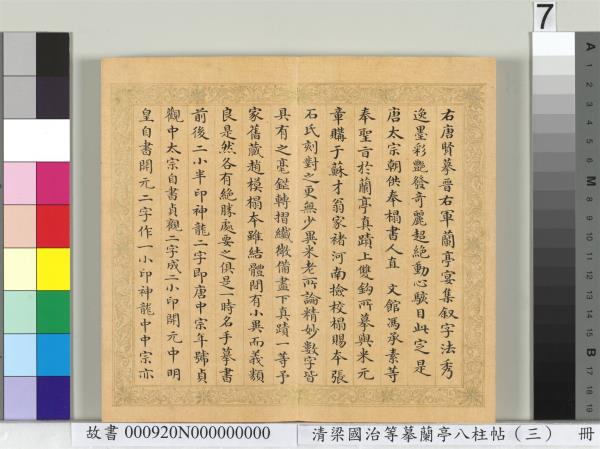 右唐賢摹晉右軍蘭亭宴集叙字法秀
逸墨彩艷發奇麗超絕動心駭目此定是
唐太宗朝供奉榻書人直 文館馮承素等
奉聖旨於蘭亭真蹟上雙鈎所摹與米元
章購于蘇才翁家褚河南撿校榻賜本張
石氏刻對之更無少異米老所論精妙數字皆
具有之毫鋩轉摺纖微備盡下真蹟一等予
家舊藏趙模榻本雖結體間有小異而義類
良是然各有絕勝處要之俱是一時名手摹書
前後二小半印神龍二字即唐中宗年號貞
觀中太宗自書貞觀二字成二小印開元中明
皇自書開元二字作一小印神龍中中宗亦
7
A 1 2 3 4 5 6 M 8 9 10 11 12 13 14 15 B 17 18 19
故書 000920N000000000
清梁國治等摹蘭亭八柱帖（三） 冊